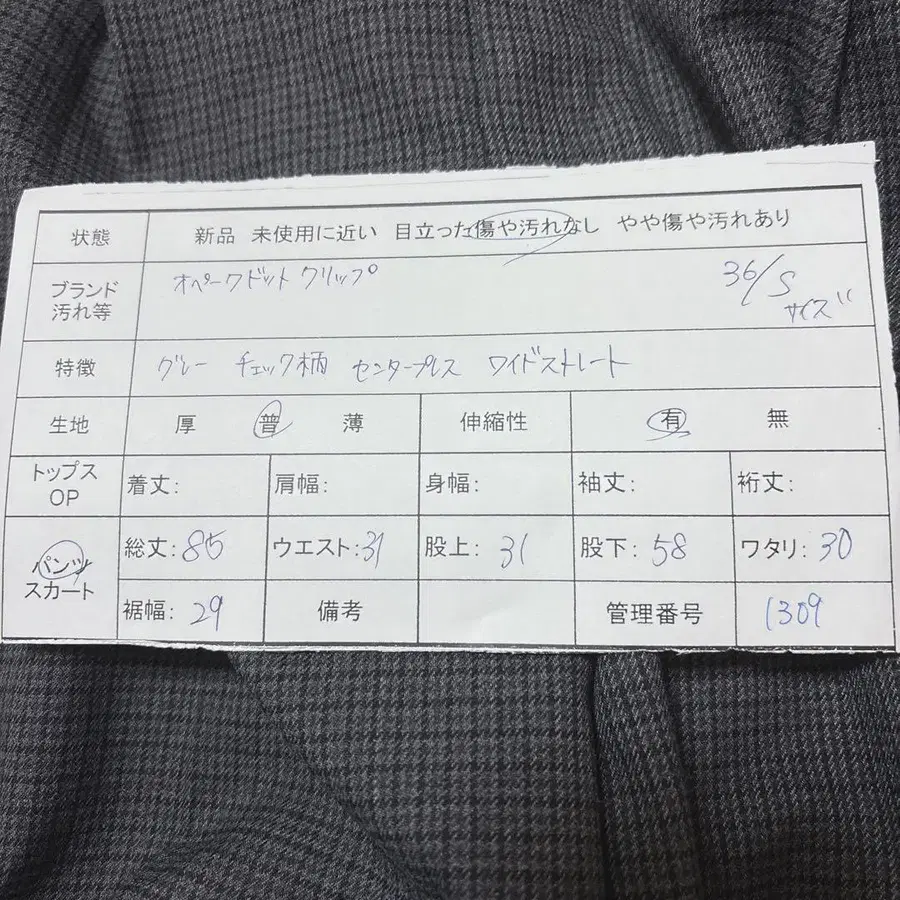 状態 新品 未使用に近い 目立った傷や汚れなし やや傷や汚れあり
ブランド 汚れ等 オペークドット クリップ 36/S サイズ
特徴 グレー チェック柄 センタープレス ワイドストレート
生地 厚 普 薄 伸縮性 有 無
トップス OP 着丈: 肩幅: 身幅: 袖丈: 裄丈:
パンツ スカート 総丈: 85 ウエスト: 31 股上: 31 股下: 58 ワタリ: 30
裾幅: 29 備考 管理番号 1309